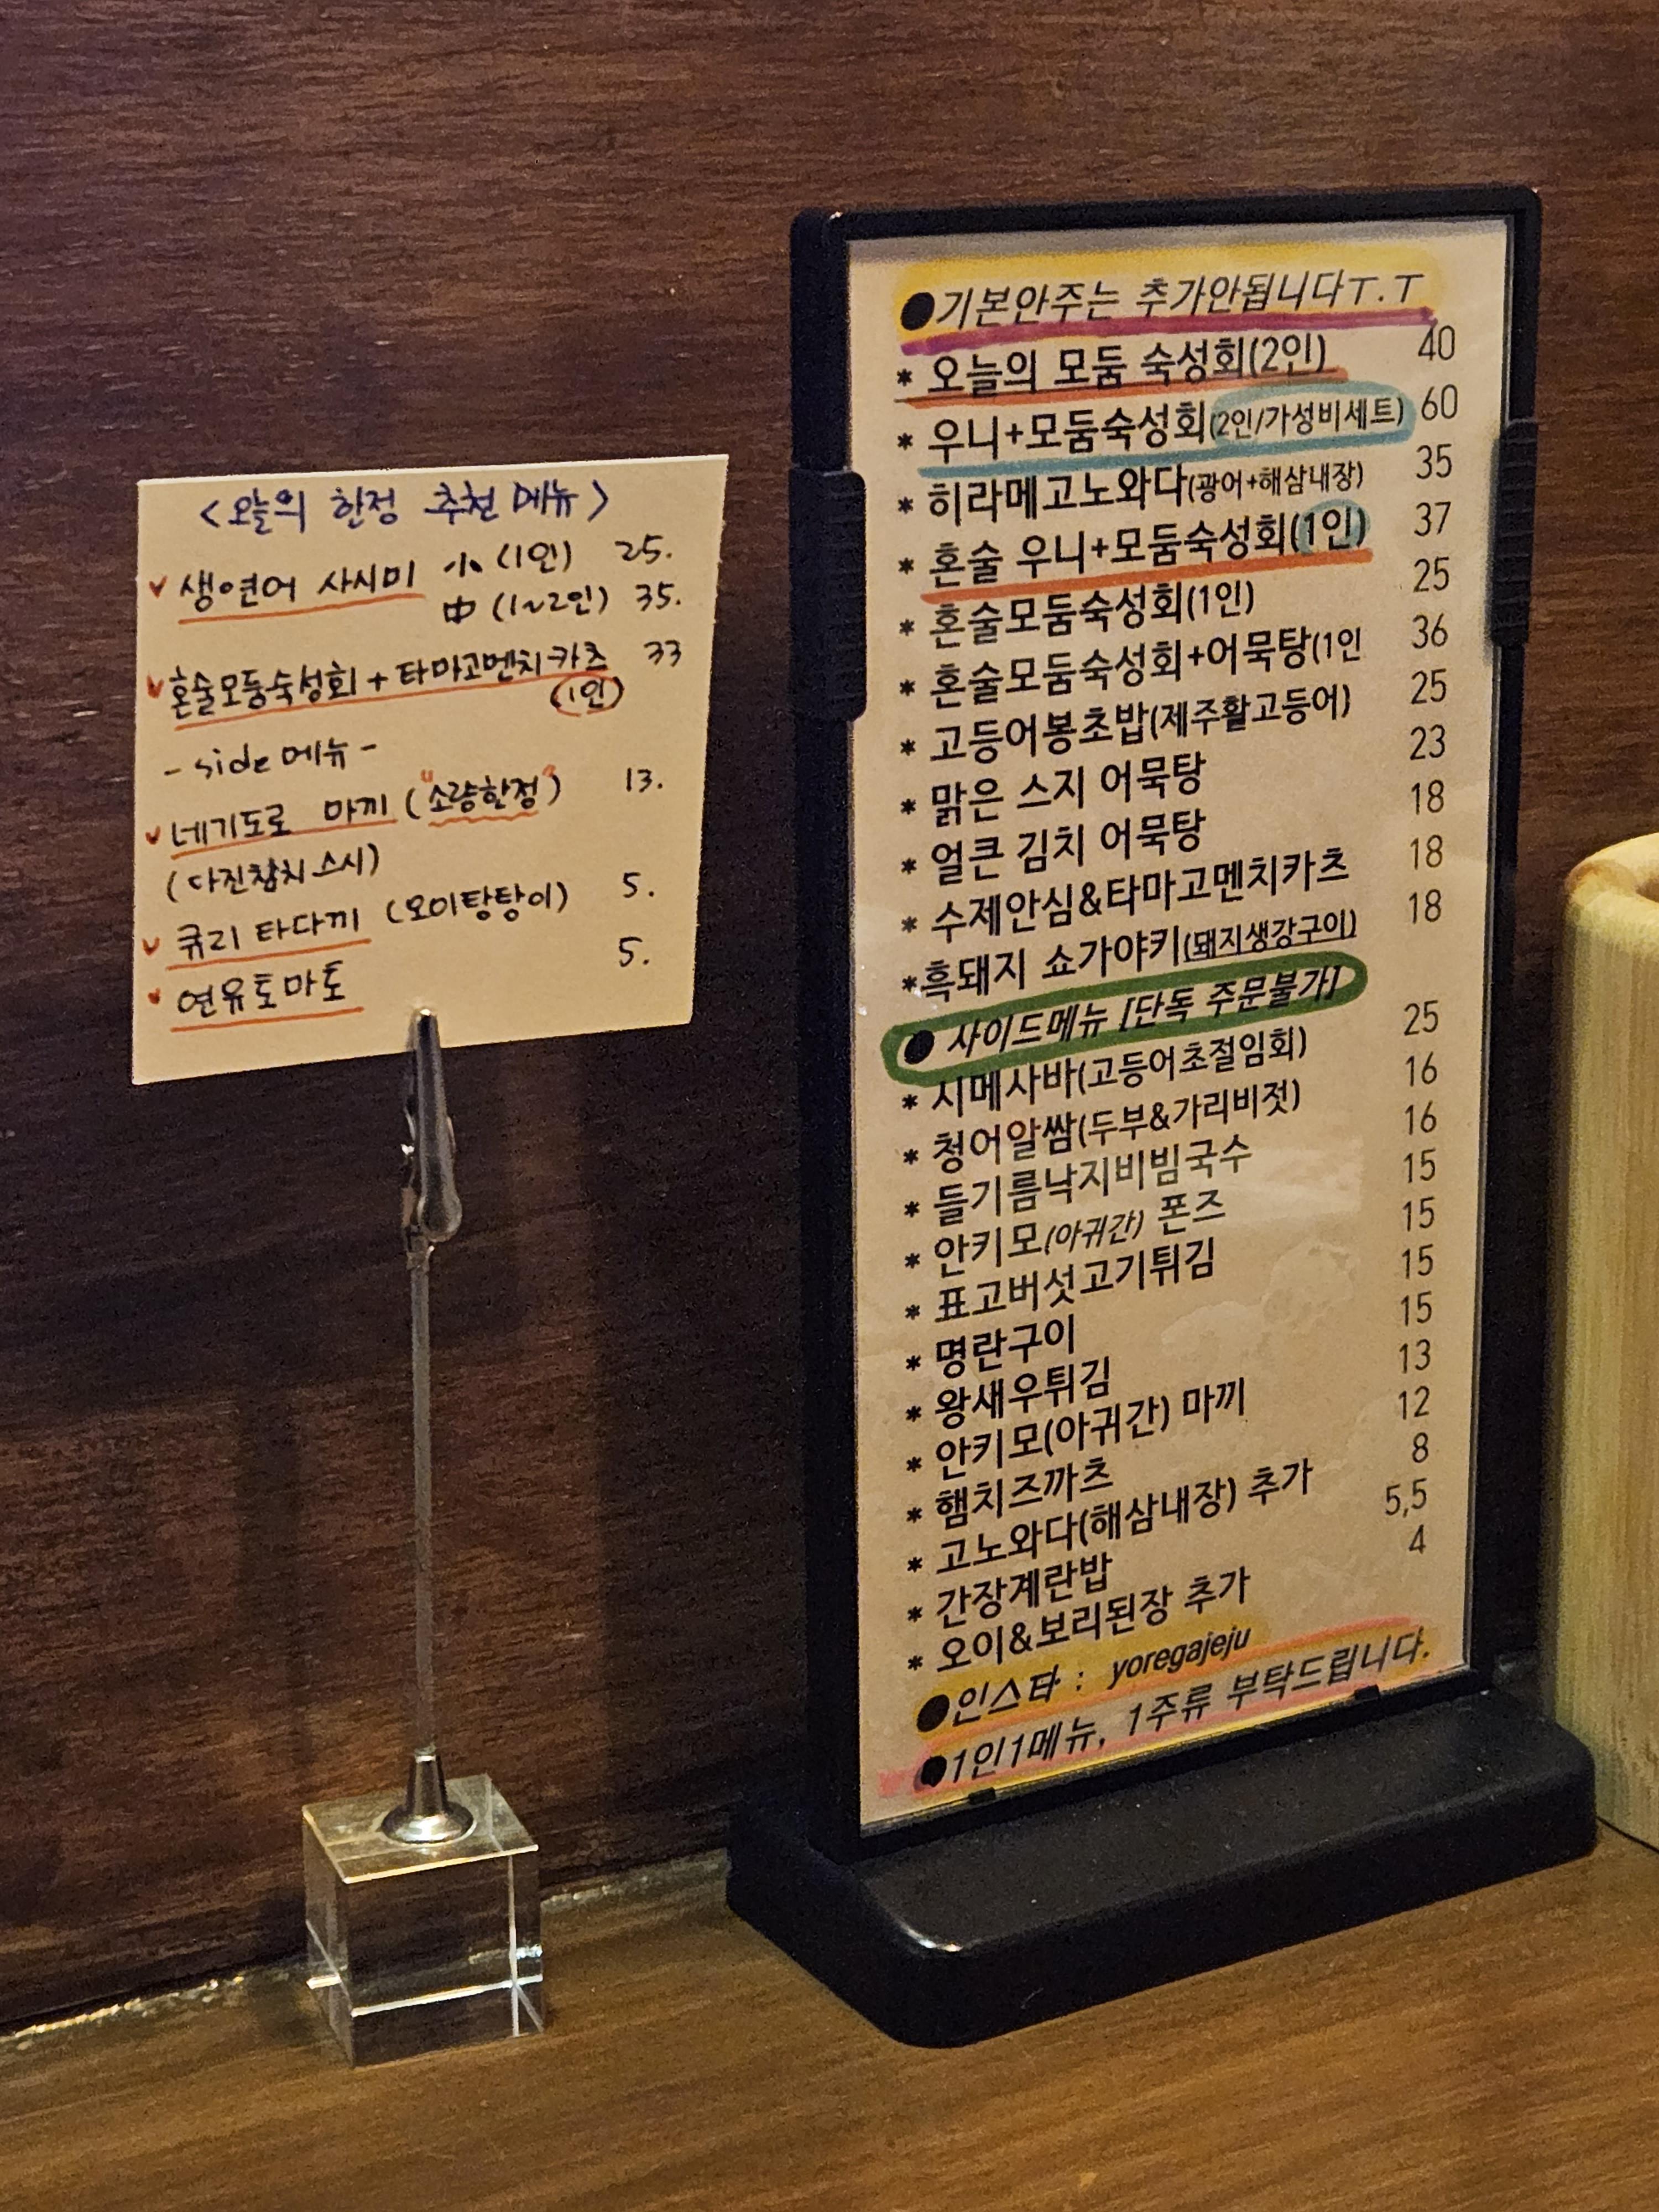 <오늘의 한정 추천 메뉴>
생연어 사시미 小 (1인) 25.
中 (1~2인) 35.
혼술모둠숙성회 + 타마고멘치카츠 33
(1인)
- side 메뉴 -
네기도로 마끼 ("소량한정") 13.
(다진참치스시)
큐리 타다끼 (오이탕탕이) 5.
연유토마토 5.
●기본안주는 추가안됩니다ㅜ.ㅜ
* 오늘의 모둠 숙성회(2인) 40
* 우니+모둠숙성회(2인/가성비세트) 60
* 히라메고노와다(광어+해삼내장) 35
* 혼술 우니+모둠숙성회(1인) 37
* 혼술모둠숙성회(1인) 25
* 혼술모둠숙성회+어묵탕(1인 36
* 고등어봉초밥(제주활고등어) 25
* 맑은 스지 어묵탕 23
* 얼큰 김치 어묵탕 18
* 수제안심&타마고멘치카츠 18
*흑돼지 쇼가야키(돼지생강구이) 18
● 사이드메뉴 [단독 주문불가]
* 시메사바(고등어초절임회) 25
* 청어알쌈(두부&가리비젓) 16
* 들기름낙지비빔국수 16
* 안키모(아귀간) 폰즈 15
* 표고버섯고기튀김 15
* 명란구이 15
* 왕새우튀김 15
* 안키모(아귀간) 마끼 13
* 햄치즈까츠 12
* 고노와다(해삼내장) 추가 8
* 간장계란밥 5,5
* 오이&보리된장 추가 4
●인스타 : yoregajeju
●1인1메뉴, 1주류 부탁드립니다.